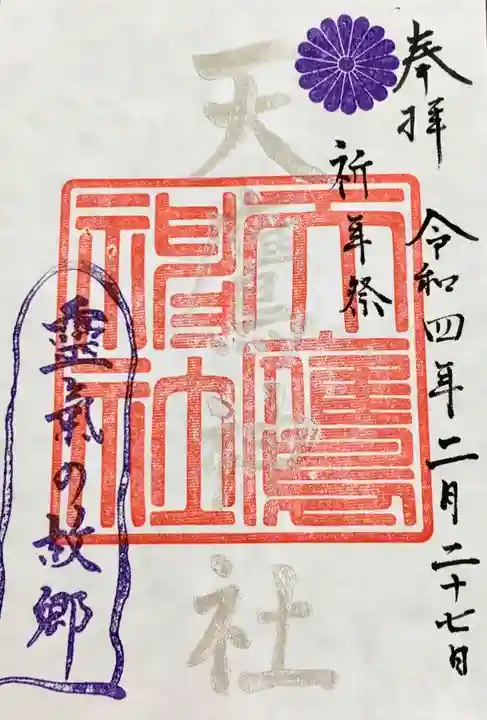 奉拝 令和四年二月二十七日
祈年祭
天鷹神社
天鷹神社
靈氣の故郷